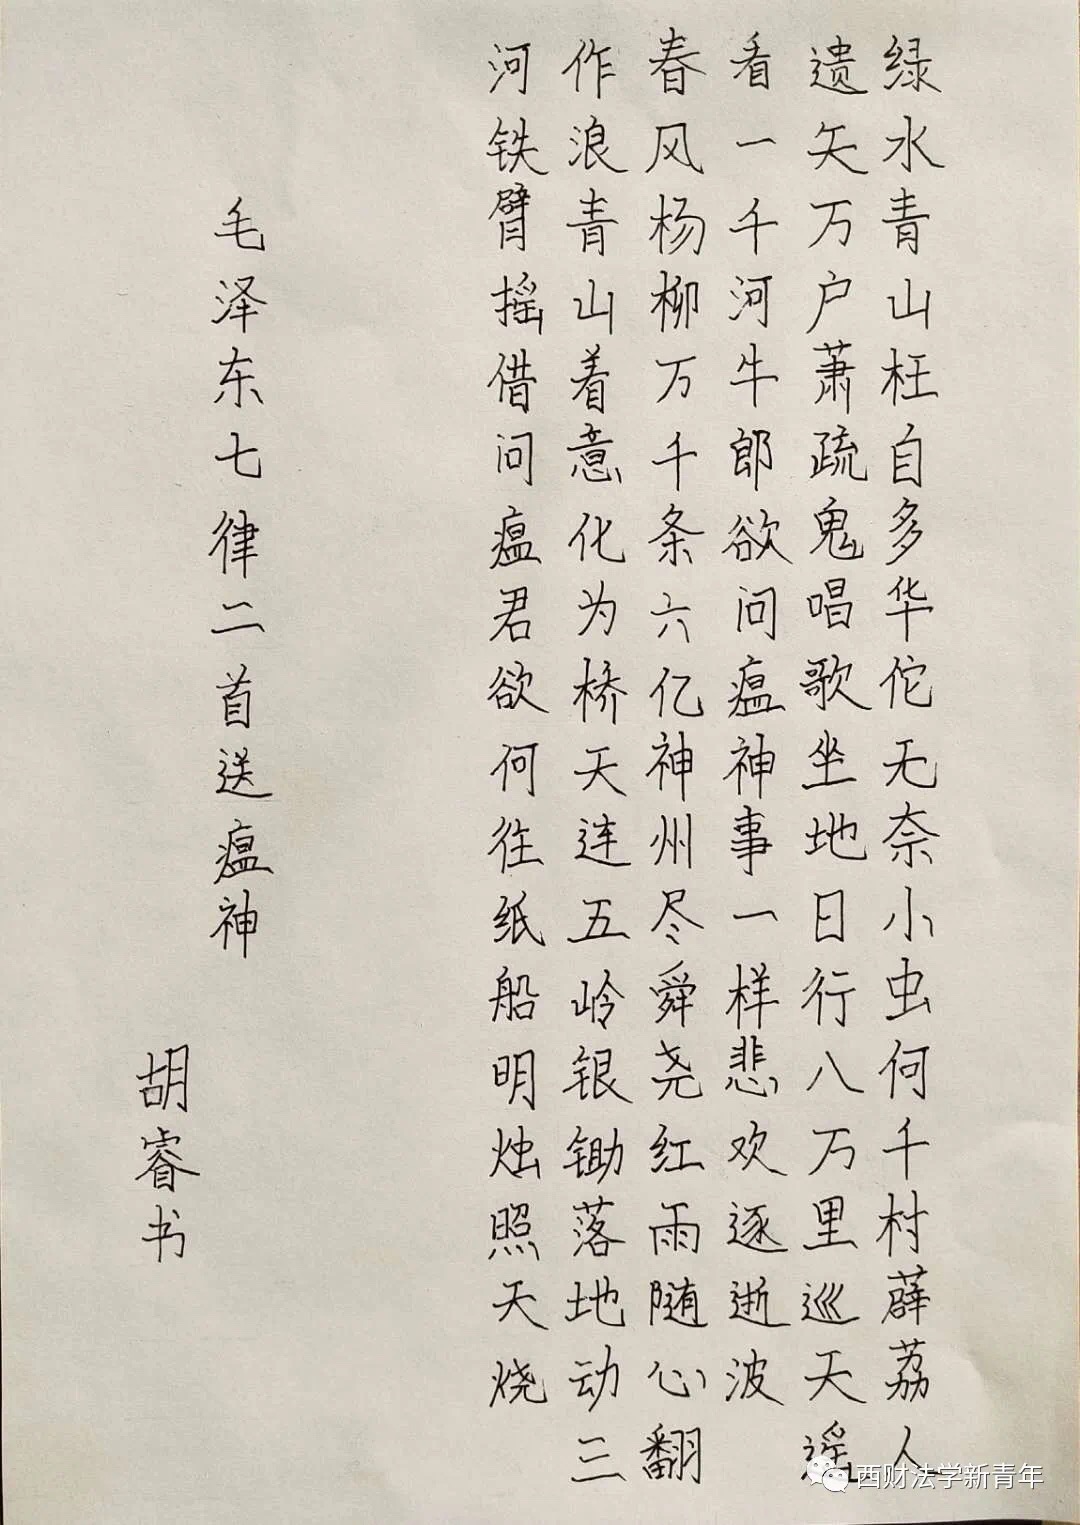 绿水青山枉自多华佗无奈小虫何千村薜荔人
遗矢万户萧疏鬼唱歌坐地日行八万里巡天遥
看一千河牛郎欲问瘟神事一样悲欢逐逝波
春风杨柳万千条六亿神州尽舜尧红雨随心翻
作浪青山着意化为桥天连五岭银锄落地动三
河铁臂摇借问瘟君欲何往纸船明烛照天烧
毛泽东七律二首送瘟神
胡睿书
西财法学新青年